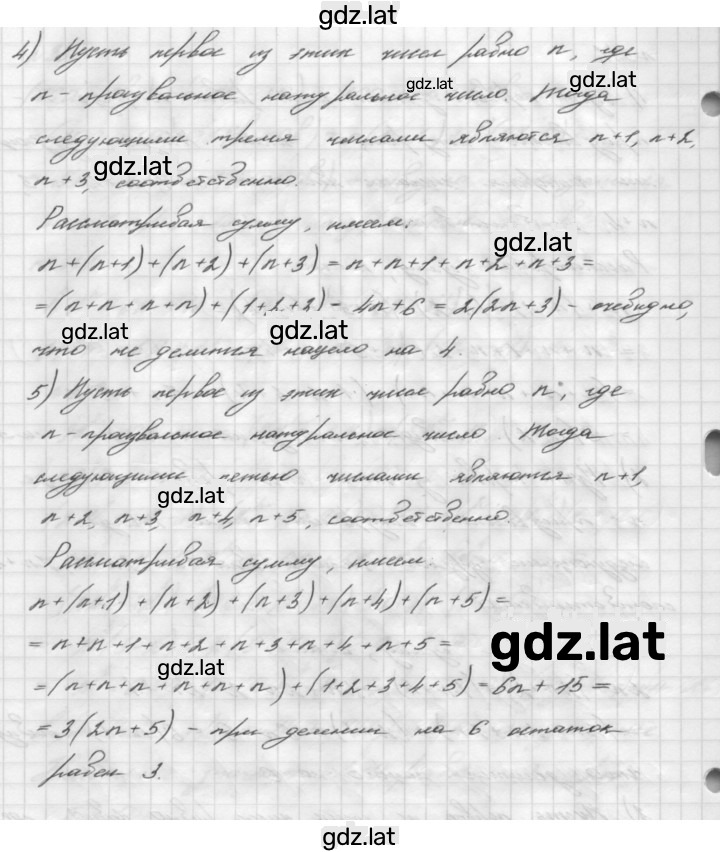 gdz.lat
4) Пусть первое из этих чисел равно n, где
gdz.lat
gdz.lat
n - произвольное натуральное число. Тогда
следующими тремя числами являются n+1, n+2,
gdz.lat
n+3, соответственно.
Рассматривая сумму, имеем:
gdz.lat
n+(n+1)+(n+2)+(n+3)=n+n+1+n+2+n+3=
=(n+n+n+n)+(1+2+2)=4n+6=2(2n+3) - очевидно,
gdz.lat
gdz.lat
что не делится нацело на 4.
5) Пусть первое из этих чисел равно n, где
n - произвольное натуральное число. Тогда
следующими пятью числами являются n+1,
gdz.lat
n+2, n+3, n+4, n+5, соответственно.
Рассматривая сумму, имеем:
n+(n+1)+(n+2)+(n+3)+(n+4)+(n+5)=
gdz.lat
=n+n+1+n+2+n+3+n+4+n+5=
gdz.lat
=(n+n+n+n+n+n)+(1+2+3+4+5)=6n+15=
=3(2n+5) - при делении на 6 остаток
равен 3.
gdz.lat